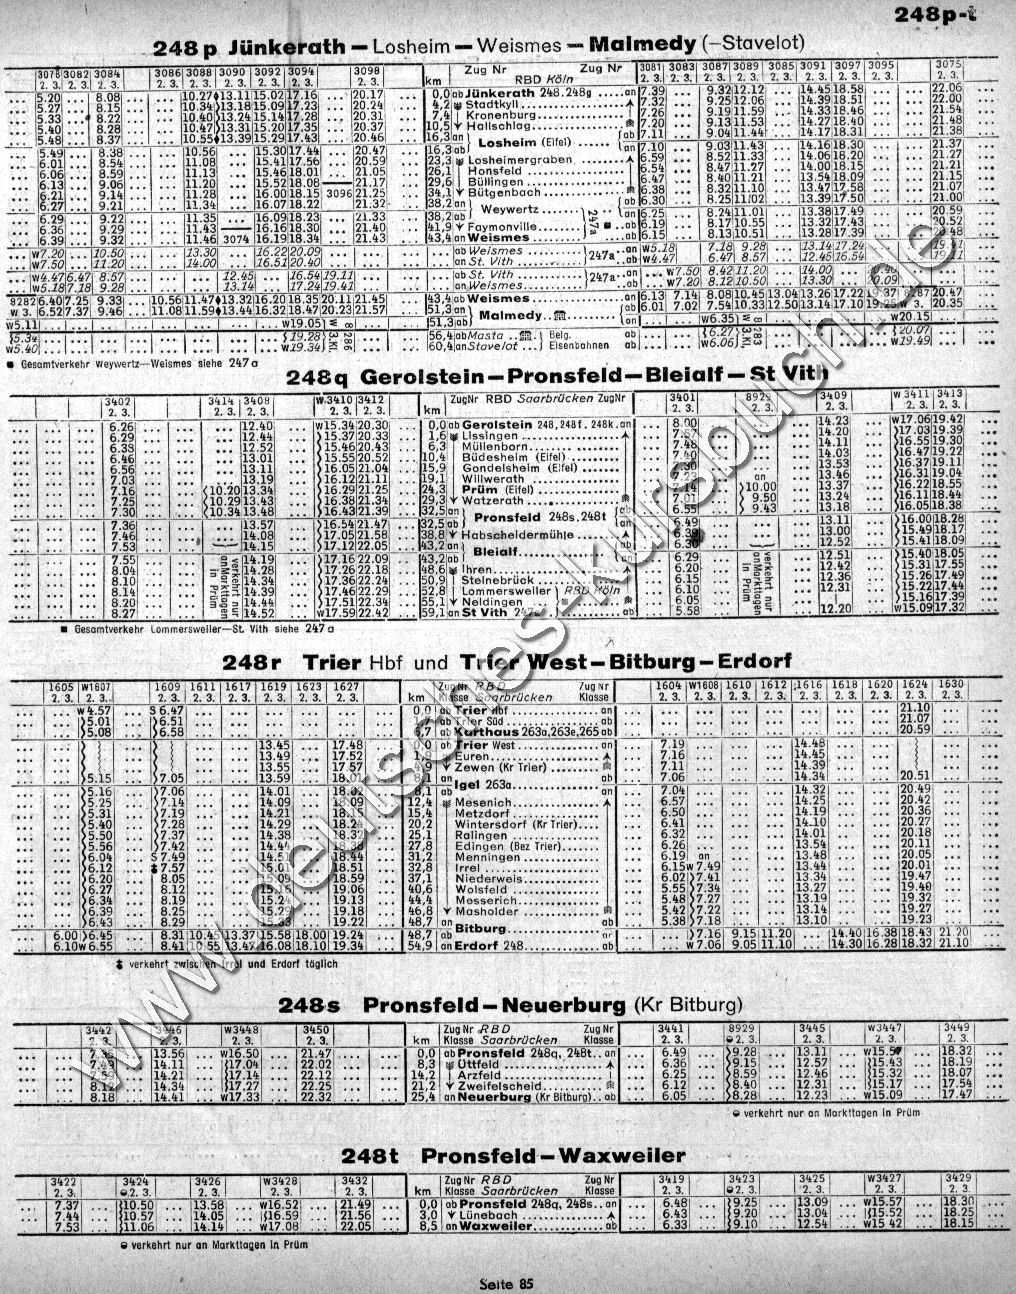 248p-t
248p Jünkerath – Losheim – Weismes – Malmedy (–Stavelot)
3078 3082 3084 3086 3088 3090 3092 3094 3098 Zug Nr Zug Nr 3081 3083 3087 3089 3085 3091 3097 3095 3075
km RBD Köln
5.20 8.08 10.27 13.11 15.02 17.16 20.17 0,0 ab Jünkerath 248.248g an 7.39 9.32 12.12 14.45 18.58 22.06
5.27 8.15 10.34 13.18 15.09 17.23 20.24 4,2 Stadtkyll 7.32 9.25 12.06 14.39 18.51 22.00
5.33 8.22 10.40 13.24 15.14 17.28 20.31 7,4 Kronenburg 7.26 9.19 11.59 14.33 18.46 21.54
5.40 8.28 10.47 13.31 15.20 17.35 20.37 10,5 Hallschlag 7.20 9.13 11.53 14.27 18.40 21.48
5.48 8.37 10.55 13.39 15.29 17.43 20.46 16,3 an Losheim (Eifel) ab 7.11 9.04 11.44 14.17 18.31 21.38
5.49 8.38 10.56 15.30 17.44 20.47 16,3 ab an 7.10 9.03 11.43 14.16 18.30 21.37
6.01 8.54 11.08 15.41 17.56 20.59 23,3 Losheimergraben 6.59 8.52 11.33 14.06 18.20 21.27
6.06 8.59 11.13 15.46 18.01 21.05 26,1 Honsfeld 6.54 8.47 11.27 14.00 18.15 21.21
6.13 9.06 11.20 15.52 18.08 21.17 29,6 Büllingen 6.47 8.40 11.21 13.54 18.09 21.15
6.21 9.14 11.28 16.00 18.15 3096 21.25 34,1 Bütgenbach 6.38 8.32 11.10 13.47 17.58 21.07
6.27 9.21 11.34 16.07 18.22 21.32 38,2 an Weywertz ab 6.30 8.25 11.02 13.39 17.50 21.00
6.29 9.22 11.35 16.09 18.23 21.33 38,2 ab an 6.25 8.24 11.01 13.38 17.49 20.59
6.36 9.29 11.43 16.16 18.30 21.40 41,9 Faymonville 247a 6.19 8.17 10.55 13.32 17.43
6.39 9.32 11.46 3074 16.19 18.34 21.43 43,4 an Weismes ab 6.15 8.13 10.51 13.28 17.39
W7.20 10.50 13.30 16.22 20.09 ab Weismes 247a an W5.18 7.18 9.28 13.14 17.24
W7.50 11.20 14.00 16.51 20.40 an St. Vith ab W4.47 6.47 8.57 12.45 16.54 19.11
W4.47 6.47 8.57 12.45 16.54 19.11 ab St. Vith 247a an W7.50 8.42 11.20 14.00
W5.18 7.18 9.28 13.14 17.24 19.41 an Weismes ab W7.20 8.12 10.50 13.30
8282 6.40 7.25 9.33 10.56 11.47 13.32 16.20 18.35 20.11 21.45 43,4 ab Weismes an 6.13 7.14 8.08 10.45 13.04 13.26 17.22 20.47
W 3. 6.52 7.37 9.46 11.08 11.59 13.44 16.32 18.47 20.23 21.57 51,3 an Malmedy ab 6.01 7.02 7.54 10.33 12.50 13.14 17.10 W 3. 20.35
W5.11 W19.05 W 8286 3.Kl. 51,3 ab an W6.35 W 8283 3.Kl. W20.15
5.34 19.28 56,4 ab Masta Belg. 6.27 20.07
W5.40 W19.34 60,4 an Stavelot Eisenbahnen ab W6.06 W19.49
■ Gesamtverkehr Weywertz–Weismes siehe 247a
248q Gerolstein – Pronsfeld – Bleialf – St Vith
3402 3414 3408 W3410 3412 ZugNr RBD Saarbrücken ZugNr 3401 8929 3409 W3411 3413
km
6.26 12.40 W15.34 20.30 0,0 ab Gerolstein 248, 248f. 248k. an 8.00 14.23 W17.06 19.42
6.29 12.44 15.37 20.33 1,6 Lissingen 14.20 17.03 19.39
6.38 12.52 15.46 20.43 6,3 Müllenborn 14.11 16.55 19.30
6.46 13.01 15.55 20.52 10,4 Büdesheim (Eifel) 14.03 16.47 19.22
6.56 13.11 16.05 21.04 15,9 Gondelsheim (Eifel) 13.53 16.37 19.11
7.03 13.19 16.12 21.11 19,1 Willwerath an 13.46 16.31 19.04
7.16 10.20 13.34 16.29 21.25 24,3 Prüm (Eifel) 10.00 13.37 16.22 18.55
7.25 10.29 13.43 16.38 21.34 29,3 Watzerath 7.01 9.50 13.24 16.11 18.44
7.30 10.34 13.48 16.43 21.39 32,5 an Pronsfeld 248s, 248t ab 6.55 9.43 13.18 16.05 18.38
7.36 13.57 16.54 21.47 32,5 ab an 6.49 13.11 16.00 18.28
7.46 14.08 17.05 21.58 38,8 Habscheidermühle 13.00 15.49 18.17
7.53 14.15 17.12 22.05 43,2 an Bleialf ab 6.30 12.52 15.41 18.09
7.55 14.19 17.16 22.09 43,2 ab an 12.51 15.40 18.05
8.04 14.28 17.26 22.18 48,6 Ihren 6.20 12.42 15.31 17.55
8.10 14.34 17.36 22.24 50,9 Steinebrück 6.15 12.36 15.26 17.49
8.14 14.39 17.46 22.29 52,8 Lommersweiler RBD Köln 6.10 12.31 15.22 17.44
8.20 14.44 17.51 22.34 55,1 Neidingen 6.05 15.16 17.39
8.27 14.52 W17.59 22.42 59,1 an St Vith ab 5.58 12.20 W15.09 17.32
verkehrt nur an Markttagen in Prüm
verkehrt nur an Markttagen in Prüm
■ Gesamtverkehr Lommersweiler–St. Vith siehe 247a
248r Trier Hbf und Trier West – Bitburg – Erdorf
1605 W1607 1609 1611 1617 1619 1623 1627 Zug Nr RBD Zug Nr 1604 W1608 1610 1612 1616 1618 1620 1624 1630
km Klasse Saarbrücken Klasse
W4.57 S6.47 0,0 ab Trier Hbf an 21.10
5.01 6.51 ab Trier Süd 21.07
5.08 6.58 ab Kurthaus 263a,263e,265 ab 20.59
13.45 17.48 0,0 ab Trier West an 7.19 14.48
13.49 17.52 Euren 7.16 14.45
13.55 17.57 Zewen (Kr Trier) 7.11 14.39
5.15 7.05 13.59 18.01 8,1 an Igel 263a ab 7.06 14.34 20.51
5.16 7.06 14.01 18.02 8,1 ab an 7.04 14.32 20.49
5.25 7.14 14.09 18.09 12,4 Mesenich 6.57 14.25 20.42
5.31 7.19 14.21 18.15 15,4 Metzdorf 6.50 14.19 20.36
5.40 7.28 14.29 20,2 Wintersdorf (Kr Trier) 6.41 14.10 20.27
5.50 7.37 14.38 18.32 25,1 Ralingen 6.32 14.01 20.18
5.56 7.42 14.44 18.38 27,8 Edingen (Bez Trier) 6.26 13.54 20.11
6.04 S7.49 18.44 31,2 Menningen 6.19 an 13.48 20.05
6.12 7.57 15.01 18.51 32,8 Irrel 6.15 W7.49 13.44 20.01
6.20 8.05 18.59 37,1 Niederweis 6.02 7.41 13.34 19.47
6.27 8.12 15.16 19.06 40,6 Wolsfeld 5.55 7.34 13.27 19.40
6.34 8.19 15.24 19.13 44,4 Messerich 5.48 7.27 13.19 19.32
6.39 8.25 15.29 19.18 46,8 Masholder 5.42 7.22 13.14 19.27
6.43 8.29 15.33 19.22 48,7 an Bitburg ab 5.38 7.18 13.10 19.23
6.00 6.45 8.31 10.45 13.37 15.58 18.00 19.24 48,7 ab an 7.16 9.15 11.20 14.40 16.38 18.43 21.20
6.10 W6.55 8.41 10.55 13.47 16.08 18.10 19.34 54,9 an Erdorf 248 ab W7.06 9.05 11.10 14.30 16.28 18.32 21.10
verkehrt zwischen Irrel und Erdorf täglich
248s Pronsfeld – Neuerburg (Kr Bitburg)
3442 3446 W3448 3450 Zug Nr RBD Zug Nr 3441 8929 3445 W3447 3449
km Klasse Saarbrücken Klasse
13.56 W16.50 21.47 0,0 ab Pronsfeld 248q, 248t an 6.49 9.28 13.11 W15.57 18.32
14.11 17.04 22.02 8,3 Üttfeld 6.36 9.15 12.57 15.43 18.19
14.21 17.14 22.12 14,2 Arzfeld 6.25 8.59 12.46 15.32 18.07
8.12 14.34 17.27 22.25 21,2 Zweifelscheid 6.12 8.40 12.31 15.17 17.54
8.18 14.41 W17.33 22.32 25,4 an Neuerburg (Kr Bitburg) ab 6.05 8.28 12.23 W15.09 17.47
verkehrt nur an Markttagen in Prüm
248t Pronsfeld – Waxweiler
3422 3424 3426 W3428 3432 Zug Nr RBD Zug Nr 3419 3423 3425 W3427 3429
km Klasse Saarbrücken Klasse
7.37 10.50 13.58 W16.52 21.49 0,0 ab Pronsfeld 248q, 248s an 6.48 9.25 13.09 W15.57 18.30
7.44 10.57 14.05 16.59 21.56 3,0 Lünebach 6.43 9.20 13.04 15.52 18.25
7.53 11.06 14.14 W17.08 22.05 8,5 an Waxweiler ab 6.33 9.10 12.54 W15 42 18.15
verkehrt nur an Markttagen in Prüm
Seite 85
www.deutsches-kursbuch.de